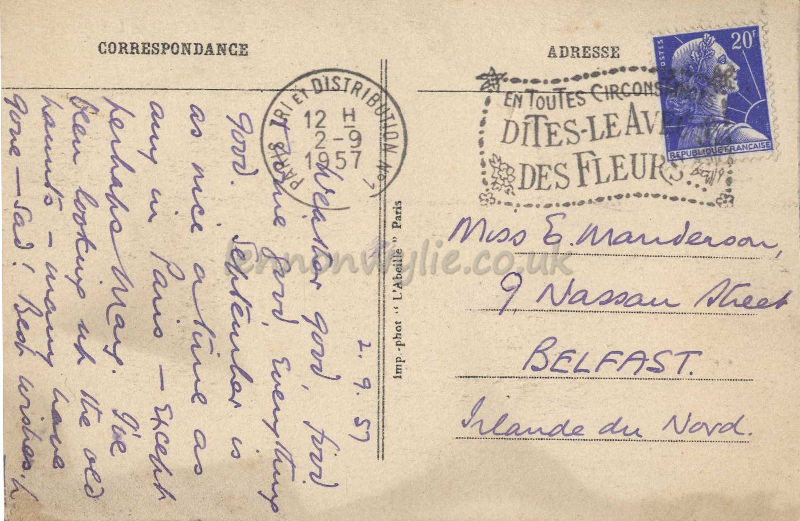 CORRESPONDANCE
2.9.57
Weather good, food
& wine good, everything
good. September is
as nice a time as
any in Paris — Except
perhaps May. I've
been looking up the old
haunts — many have
gone — Sad! Best wishes. L.
PARIS TRI ET DISTRIBUTION No 7
12 H
2-9
1957
Imp.-phot "L'Abeille" Paris
ADRESSE
EN TOUTES CIRCONS
DITES-LE AVEC
DES FLEURS
POSTES
20F
REPUBLIQUE FRANCAISE
Miss E. Manderson,
9, Nassau Street
BELFAST.
Irlande du Nord.
lennonwylie.co.uk